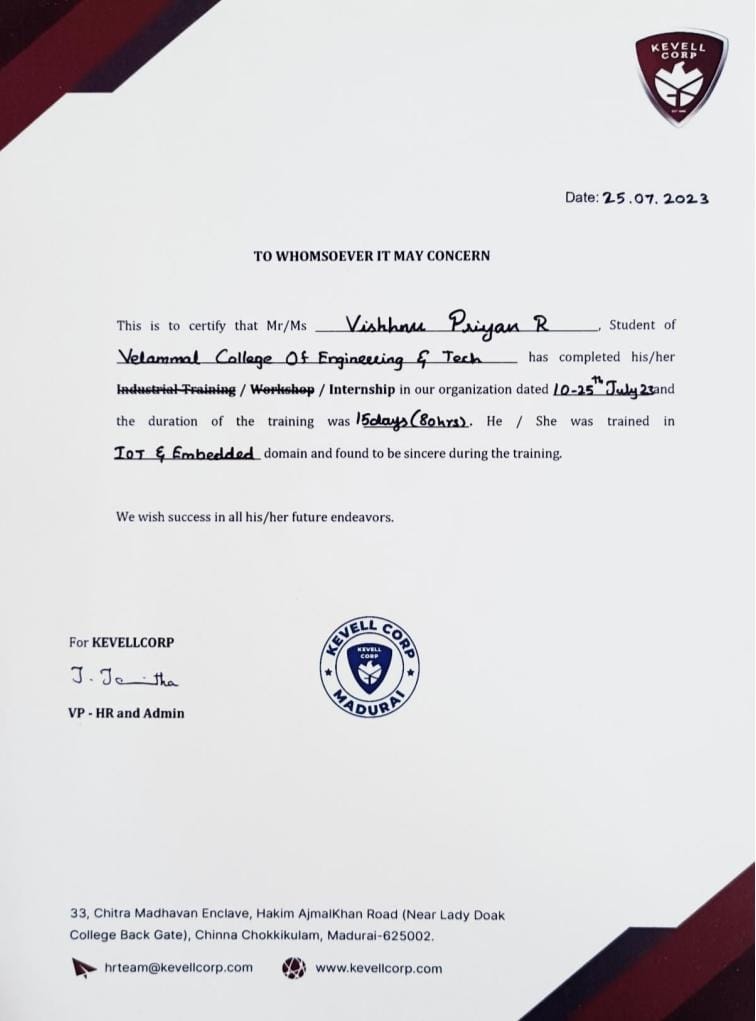 KEVELL
CORP
Date: 25.07.2023
TO WHOMSOEVER IT MAY CONCERN
This is to certify that Mr/Ms Vishhnu Priyan R, Student of
Velammal College Of Engineering & Tech has completed his/her
Industrial Training / Workshop / Internship in our organization dated 10-25th July 23 and
the duration of the training was 15days (80hrs). He / She was trained in
IoT & Embedded domain and found to be sincere during the training.
We wish success in all his/her future endeavors.
For KEVELLCORP
VP - HR and Admin
KEVELL CORP
KEVELL
CORP
MADURAI
33, Chitra Madhavan Enclave, Hakim AjmalKhan Road (Near Lady Doak
College Back Gate), Chinna Chokkikulam, Madurai-625002.
hrteam@kevellcorp.com www.kevellcorp.com